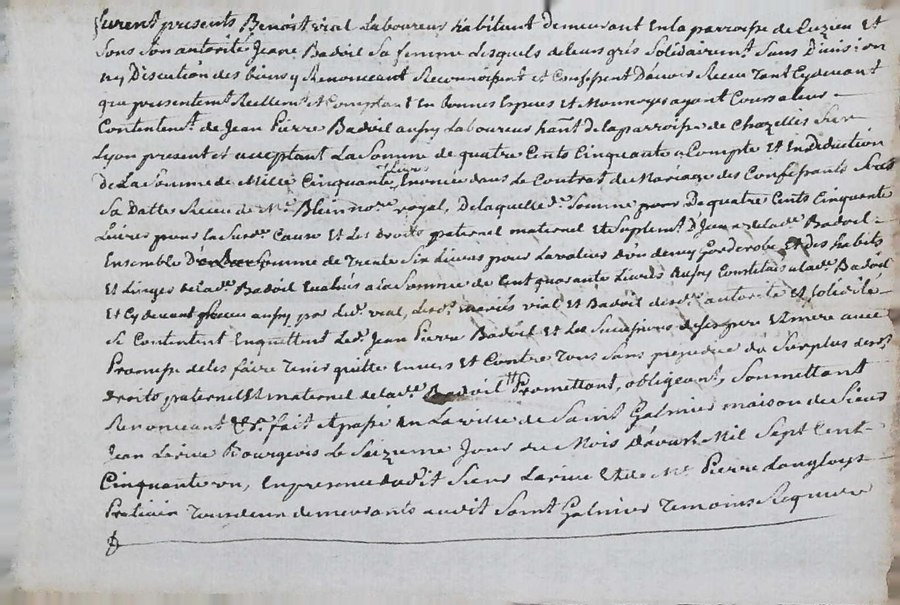 furent presents Benoist vial Laboureur habitant demeurant En la parroisse de Cuzieu Et
Sous Son autorité Jeane Badoil Sa femme Lesquels de leurs gres Solidairemt. Sans Division
ny Discution des biens y Renonceant Reconnoissent et Confessent D'avoir Receu Tant Cydevant
que presentemt. Reellemt. et Comptant En bonnes Especes et Monnoyes ayant Cours a leur
Contentemt. de Jean Pierre Badoil aussy Laboureur hant. de la parroisse de Chazelles Sur
Lyon present et acceptant La Somme de quatre Cents Cinquante a Compte Et En Deduction
De La Somme de Mille Cinquante Livres Enoncée dans le Contrat de Mariage des Confessants Sous
Sa Datte Receu de Me. Blein nore. royal, De laquelle de. Somme Dequatre Cents Cinquante
Livres pour la Susde. Cause et Les Droits paternel maternel et Suplemt. D'Jceux de lade. Badoil
Ensemble Somme de Trente Six Livres pour La valeur d'ün demy Garderobe Et Des habits
Et Linges de lade. Badoil Evalués a la Somme de Cent quarante Livres Aussy Constitués a lade. Badoil
Et Cy devant Receus aussy par Led. vial, Lesd. mariés vial Et Badoil de sade. autorité Et Solidité
Se Contentent Enquittent Led. Jean Pierre Badoil et Les Successeurs Et Mere avec
Promesse de les faire Tenir quitte Envers Et Contre Tous Sans prejudice du Surplus desd.
Droits paternel Et maternel de lade. Badoil Promettant, obligeant, Soumettant
Renonceant &c. fait Et passé En La ville de Saint Galmier maison de Sieur
Jean Larüe Bourgeois Le Seizieme Jour du Mois D'avril Mil Sept Cent
Cinquante un, En presence dudit Sieur Larüe Et de Me. Pierre Langloys
Praticien Tous deux demeurants audit Saint Galmier Temoins Requis